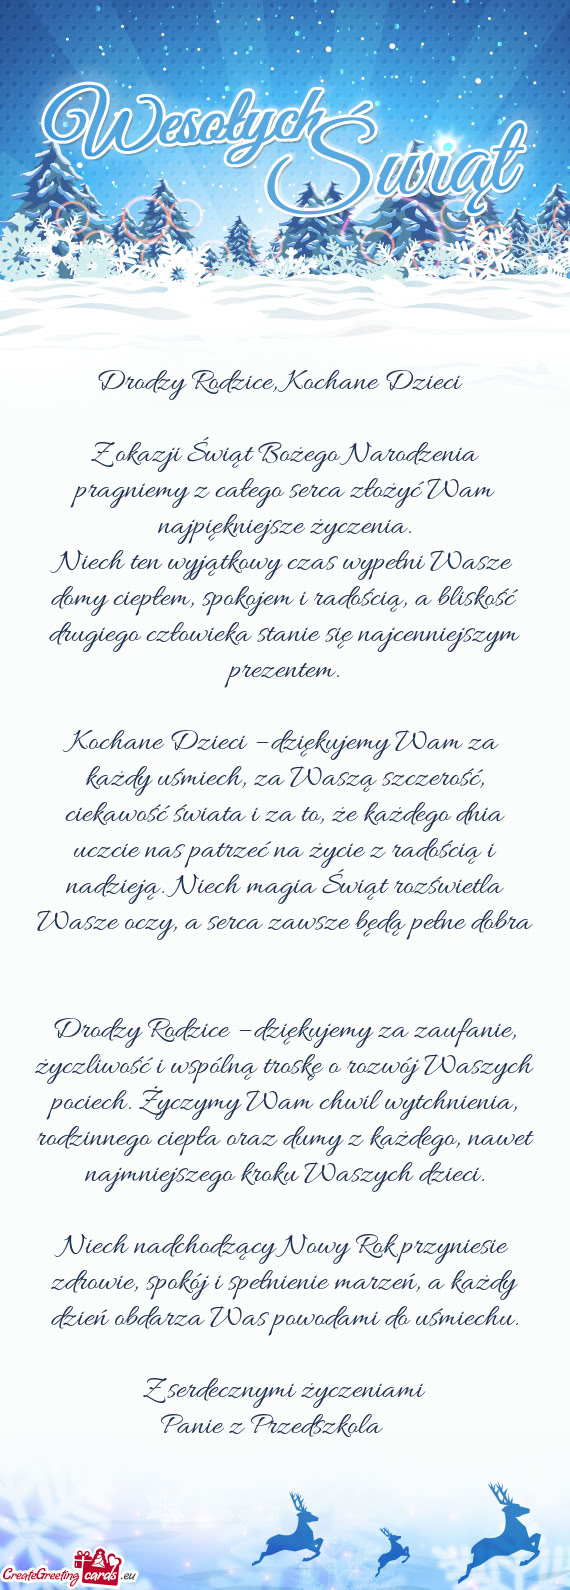 Wesołych
Świąt
Drodzy Rodzice, Kochane Dzieci
Z okazji Świąt Bożego Narodzenia
pragniemy z całego serca złożyć Wam
najpiękniejsze życzenia.
Niech ten wyjątkowy czas wypełni Wasze
domy ciepłem, spokojem i radością, a bliskość
drugiego człowieka stanie się najcenniejszym
prezentem.
Kochane Dzieci – dziękujemy Wam za
każdy uśmiech, za Waszą szczerość,
ciekawość świata i za to, że każdego dnia
uczcie nas patrzeć na życie z radością i
nadzieją. Niech magia Świąt rozświetla
Wasze oczy, a serca zawsze będą pełne dobra
Drodzy Rodzice – dziękujemy za zaufanie,
życzliwość i wspólną troskę o rozwój Waszych
pociech. Życzymy Wam chwil wytchnienia,
rodzinnego ciepła oraz dumy z każdego, nawet
najmniejszego kroku Waszych dzieci.
Niech nadchodzący Nowy Rok przyniesie
zdrowie, spokój i spełnienie marzeń, a każdy
dzień obdarza Was powodami do uśmiechu.
Z serdecznymi życzeniami
Panie z Przedszkola
CreateGreeting cards .eu